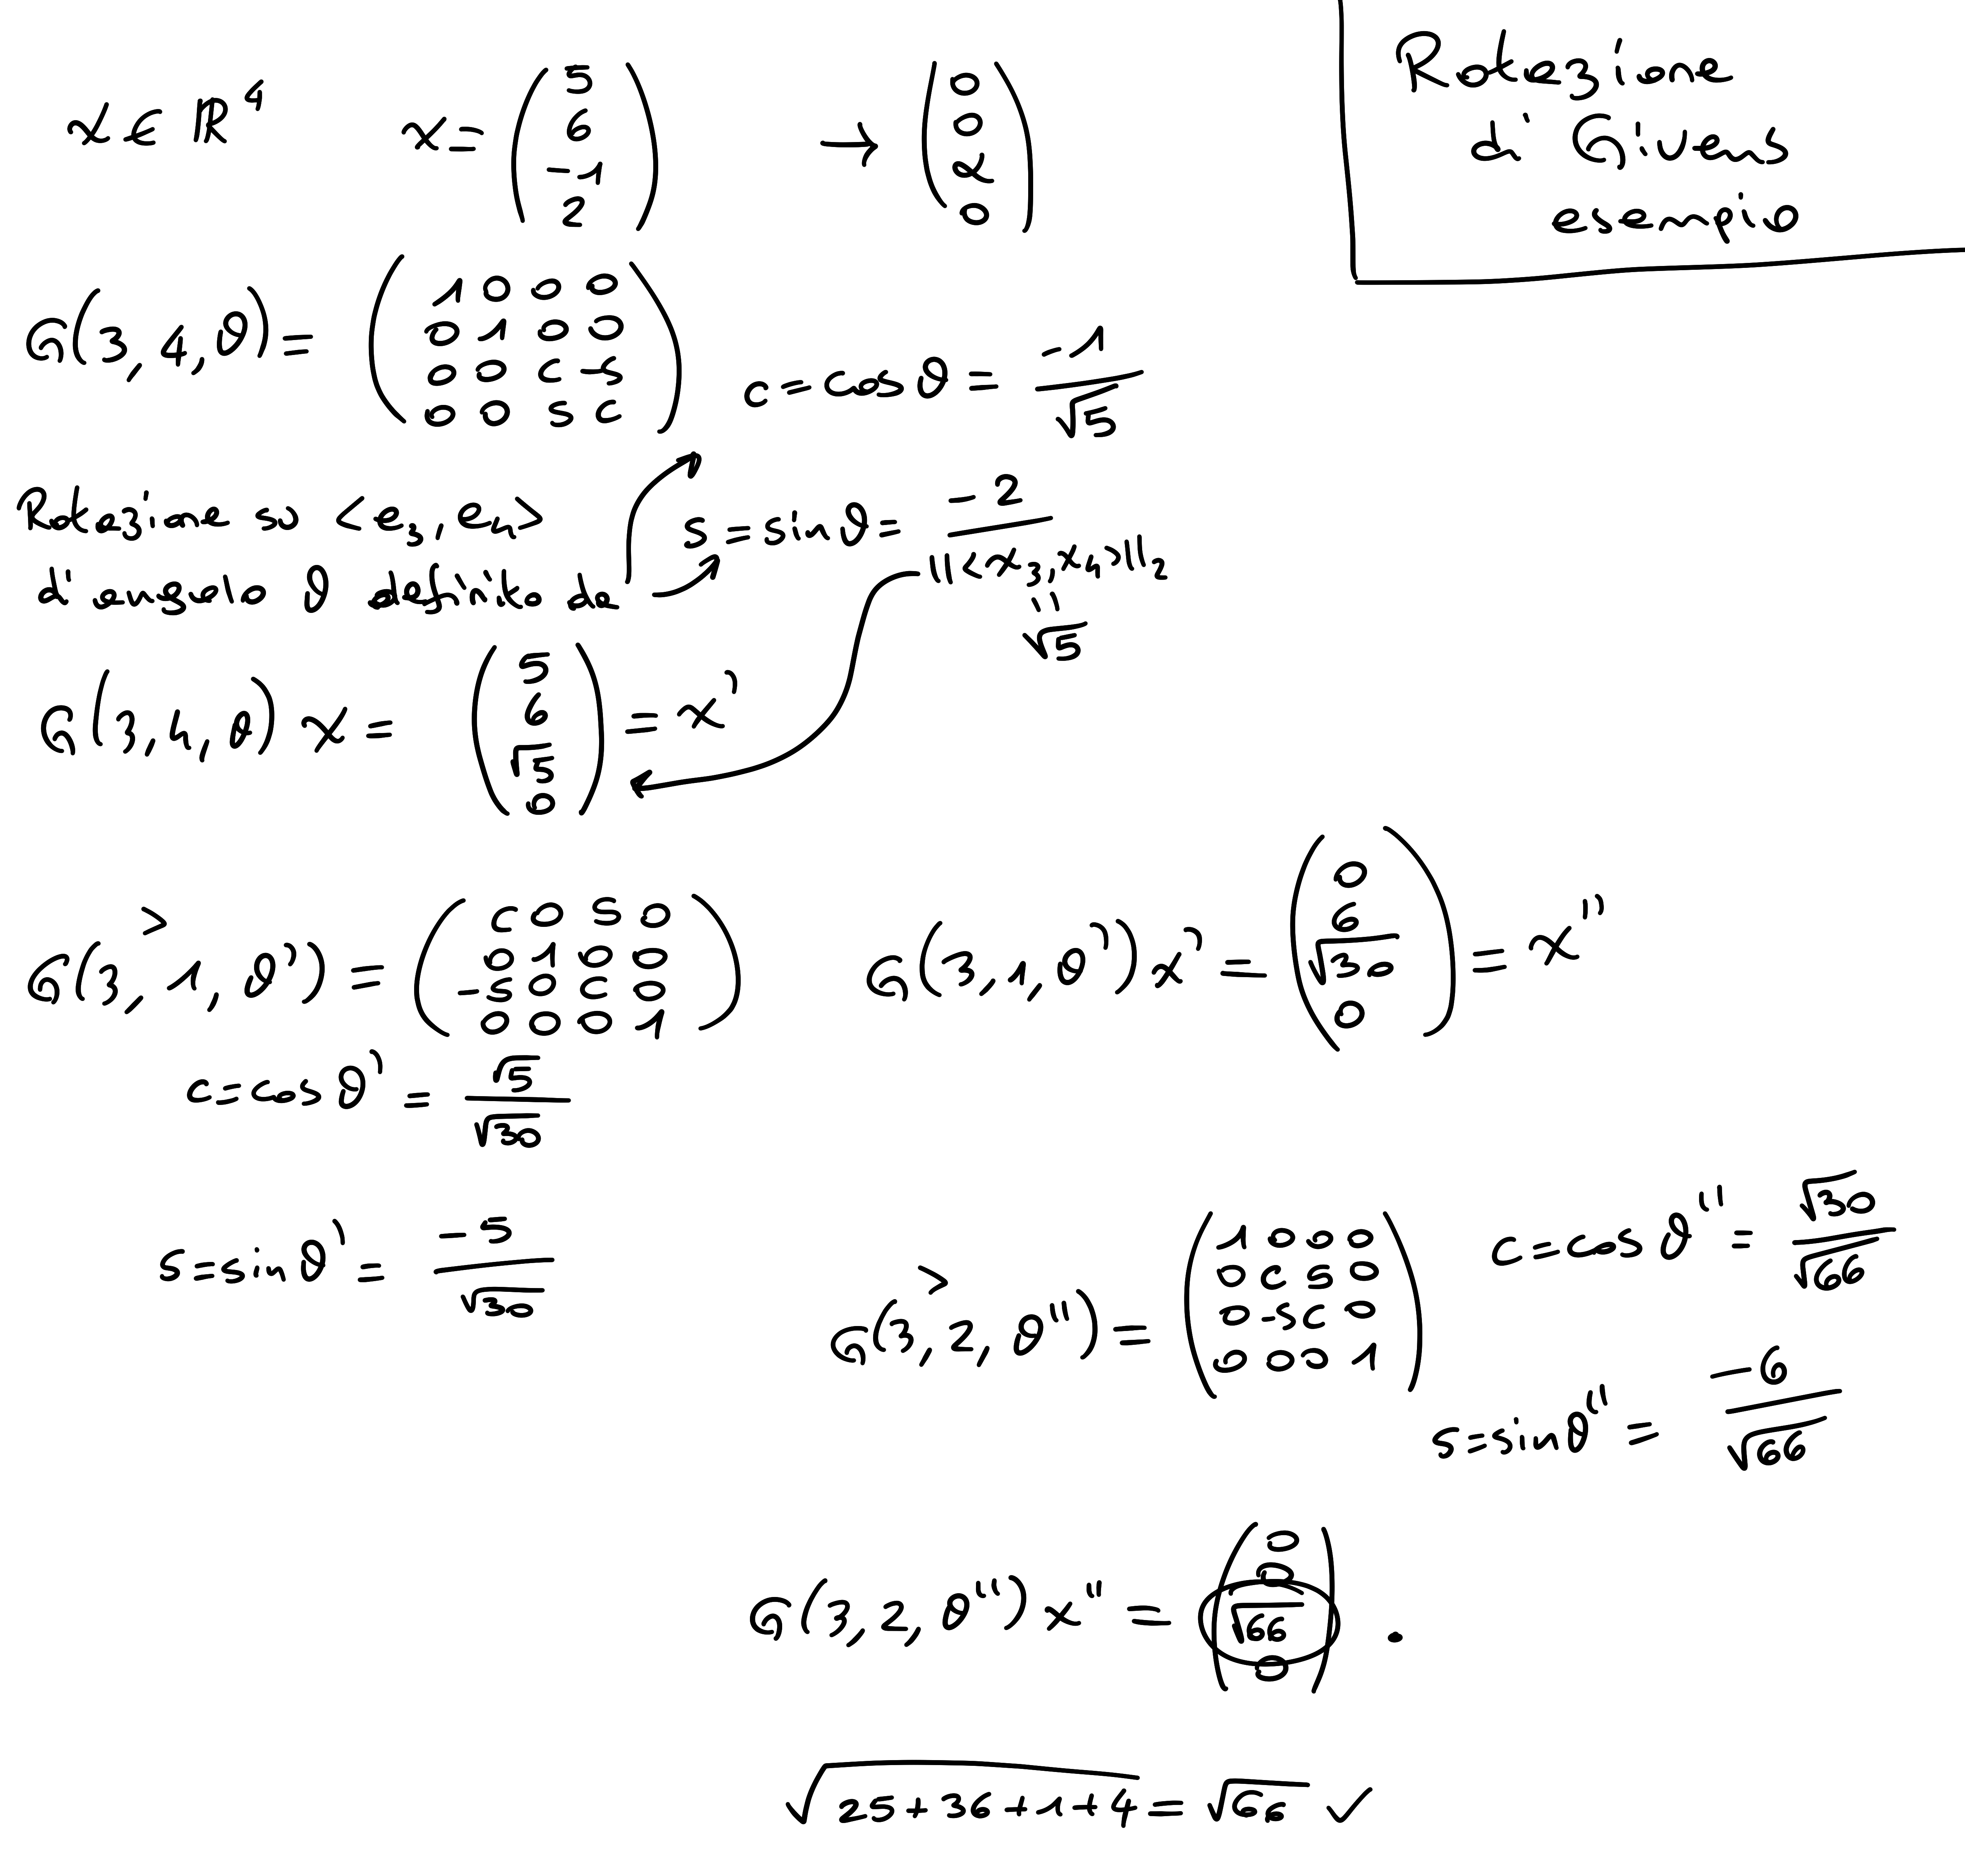 Rotazione
di Givens
esempio
x ∈ ℝ⁴   x = (5 6 -1 2)   → (0 0 α 0)
G(3, 4, θ) = (1 0 0 0
0 1 0 0
0 0 c -s
0 0 s c)
c = cos θ = -1/√5
Rotazione su <e₃, e₄>
di angolo θ definito da
s = sin θ = -2/||<x₃, x₄>||₂
"
√5
G(3, 4, θ) x = (5 6 √5 0) = x'
>
G(3, 1, θ') = (c 0 s 0
0 1 0 0
-s 0 c 0
0 0 0 1)
G(3, 1, θ') x' = (0 6 √30 0) = x''
c = cos θ' = √5/√30
s = sin θ' = -5/√30
>
G(3, 2, θ'') = (1 0 0 0
0 c s 0
0 -s c 0
0 0 0 1)
c = cos θ'' = √30/√66
s = sin θ'' = -6/√66
G(3, 2, θ'') x'' = (0 0 √66 0) .
√25+36+1+4 = √66 ✓